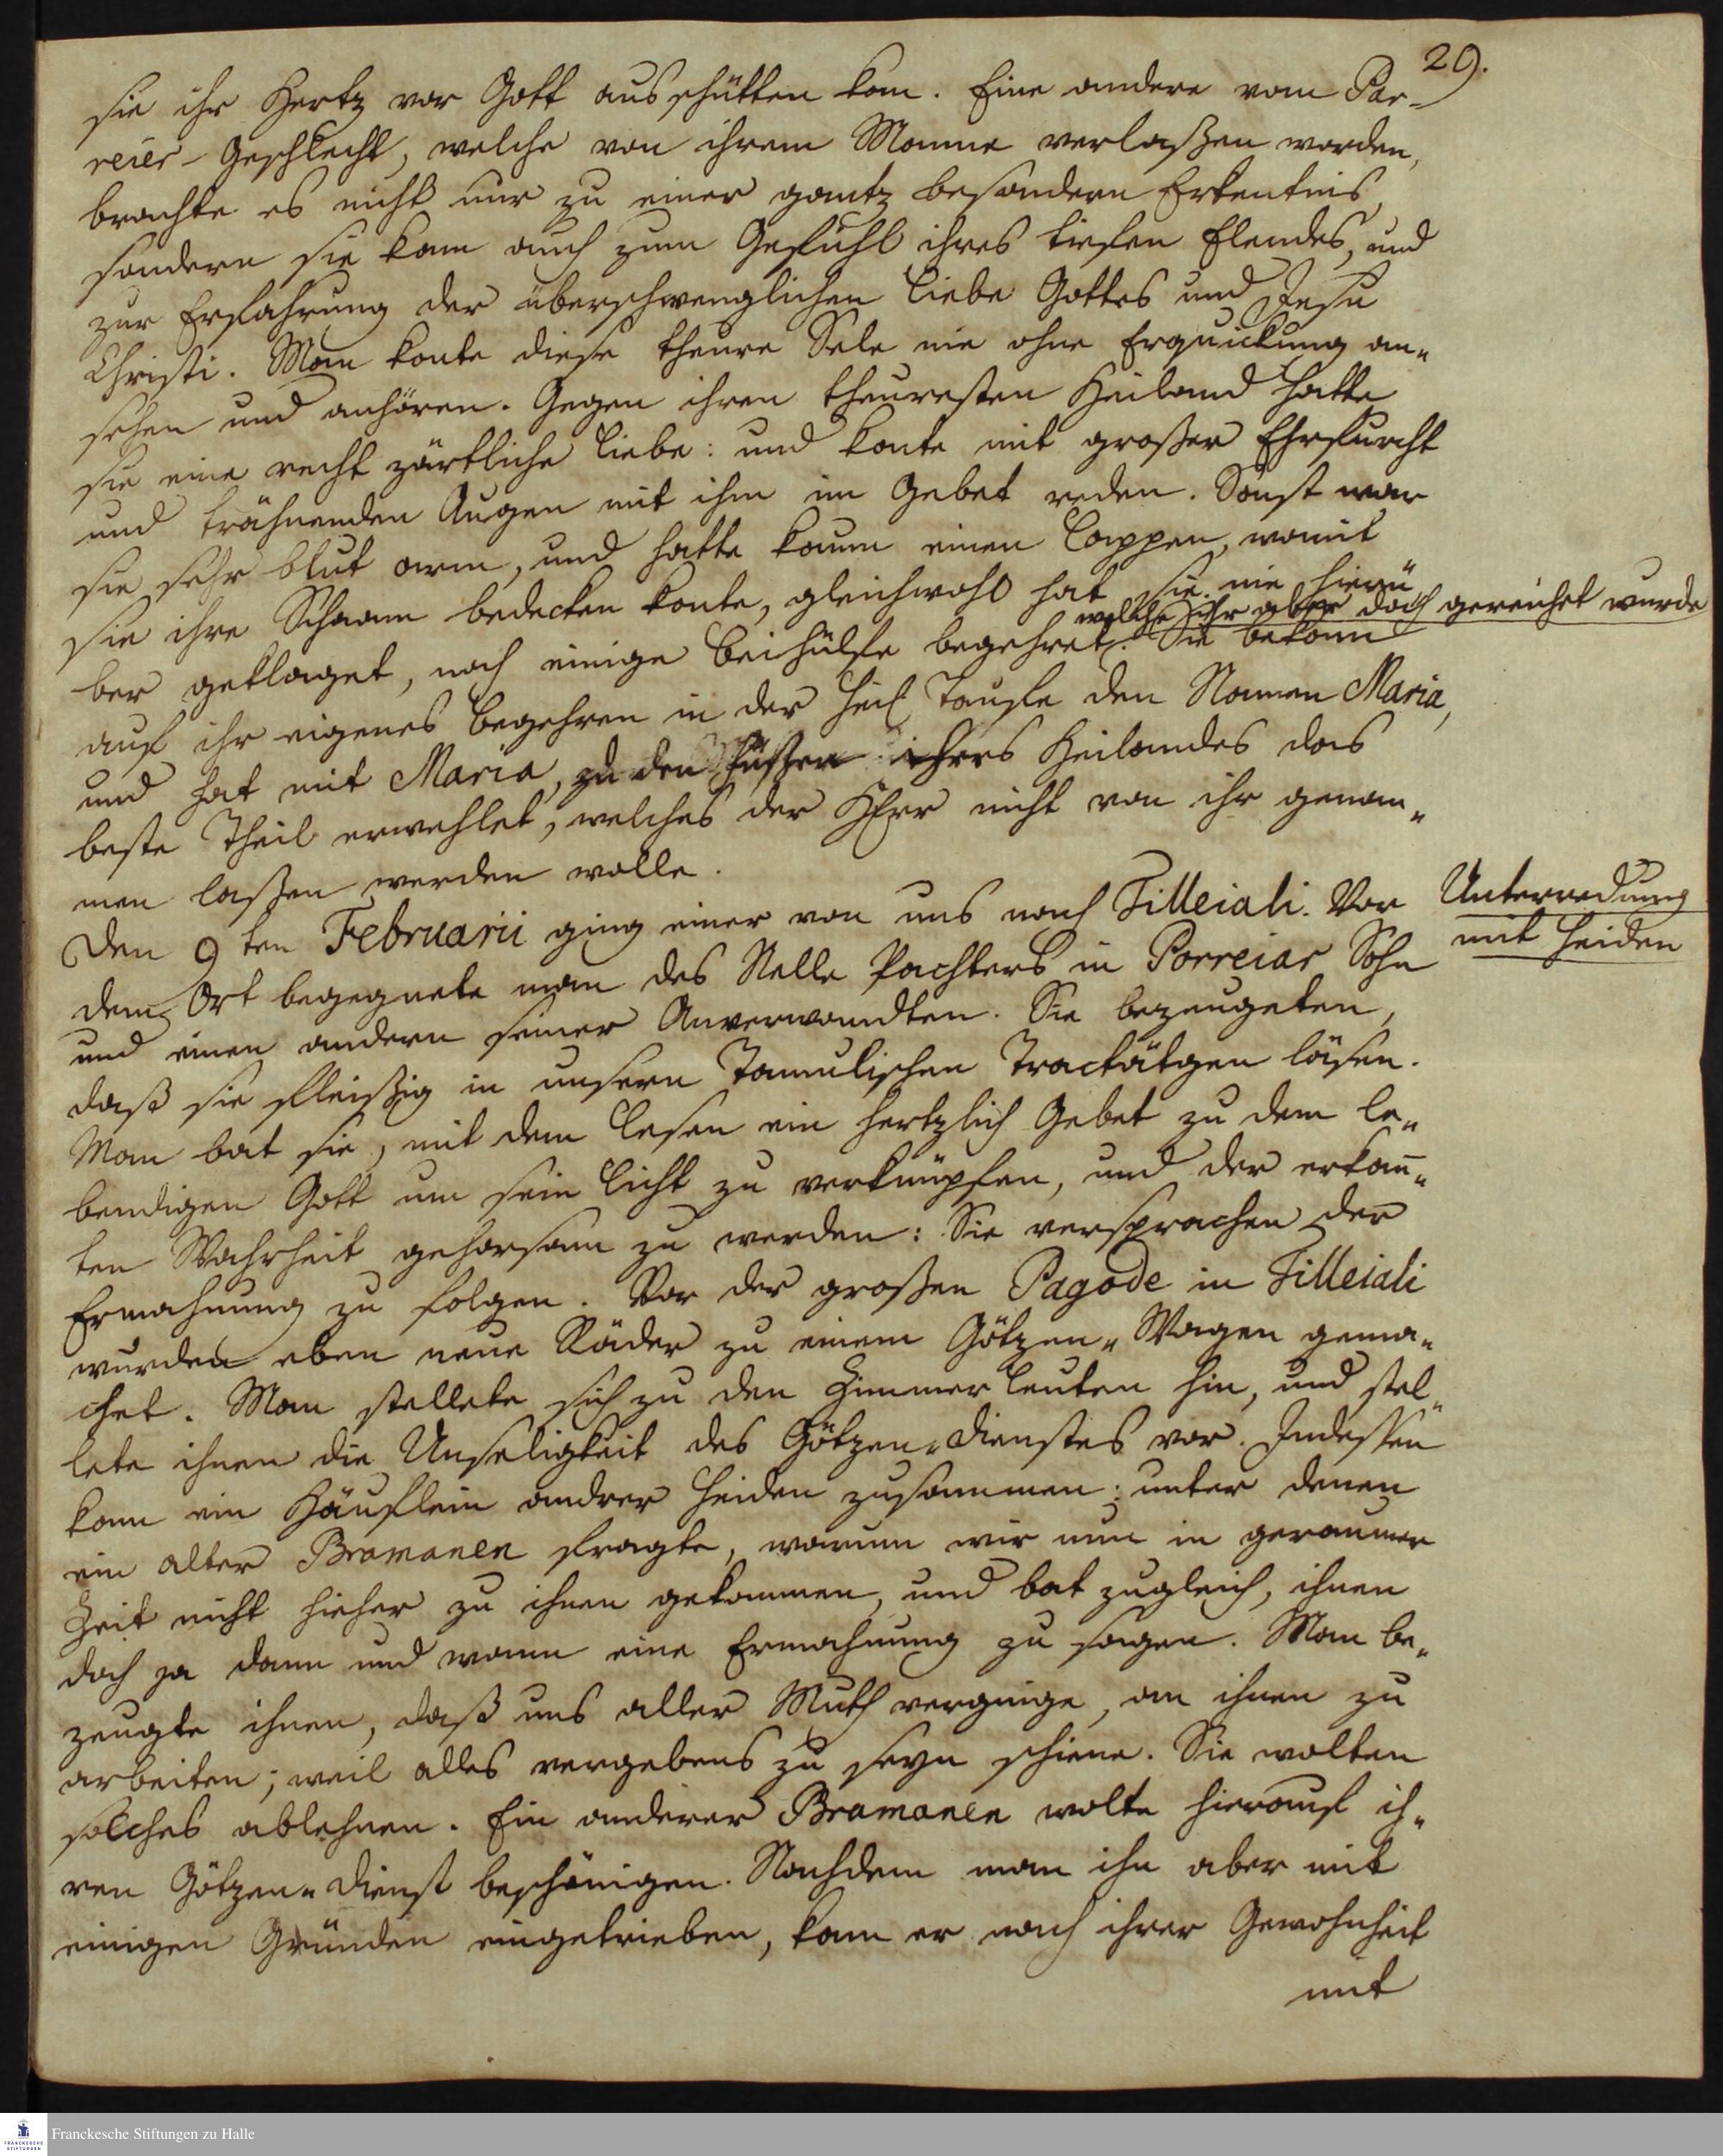 29.
sie ihr Hertz vor Gott ausschütten kan. Eine andere vom Par-
reier-Geschlecht, welche von ihrem Manne verlaßen worden,
brachte es nicht nur zu einer gantz besondern Erkentnis,
sondern sie kam auch zum Gefühl ihres tiefen Elendes, und
zur Erfahrung der überschwenglichen Liebe Gottes und Jesu
Christi. Man konte diese theure Sele nie ohne Erquickung an-
sehen und anhören. Gegen ihren theuresten Heiland hatte
sie eine recht zärtliche Liebe: und konte mit großer Ehrfurcht
und trähnenden Augen mit ihm im Gebet reden. Sonst war
sie sehr blut arm, und hatte kaum einen Lappen, womit
sie ihre Schaam bedecken konte, gleichwohl hat sie nie hierü
welche ihr aber doch gereichet wurde
ber geklaget, noch einige Beihülfe begehret. Sie bekam
auf ihr eigenes Begehren in der Heil Taufe den Namen Maria,
und hat mit Maria, zu den Füßen ihres Heilandes das
beste Theil erwehlet, welches der HErr nicht von ihr genom-
men laßen werden wolle.
Unterredung
mit Heiden
Den 9ten Februarii ging einer von uns nach Tilleiali. Vor
dem Ort begegnete man des Nelle Pachters in Porreiar Sohn
und einen andern seiner Anverwandten. Sie bezeugeten,
daß sie fleißig in unsern Tamulischen Tractätgen läsen.
Man bat sie, mit dem Lesen ein hertzlich Gebet zu dem le-
bendigen Gott um sein Licht zu verknüpfen, und der erkan̄-
ten Wahrheit gehorsam zu werden: Sie versprachen der
Ermahnung zu folgen. Vor der großen Pagode in Tilleiali
wurden eben neue Räder zu einem Götzen-Wagen gema-
chet. Man stellete sich zu den Zimmerleuten hin, und stel-
lete ihnen die Unseligkeit des Götzen-Dienstes vor. Indessen
kam ein Häuflein andrer Heiden zusammen: unter denen
ein alter Bramanen fragte, warum wir nun in geraumer
Zeit nicht hieher zu ihnen gekommen, und bat zugleich, ihnen
doch ja dann und wann eine Ermahnung zu sagen. Man be-
zeugte ihnen, daß uns aller Muth verginge, an ihnen zu
arbeiten; weil alles vergebens zu seyn schiene. Sie wolten
solches ablehnen. Ein anderer Bramanen wolte hierauf ih-
ren Götzen-Dienst beschönigen. Nachdem man ihn aber mit
einigen Gründen eingetrieben, kam er nach ihrer Gewohnheit
mit
Franckesche Stiftungen zu Halle